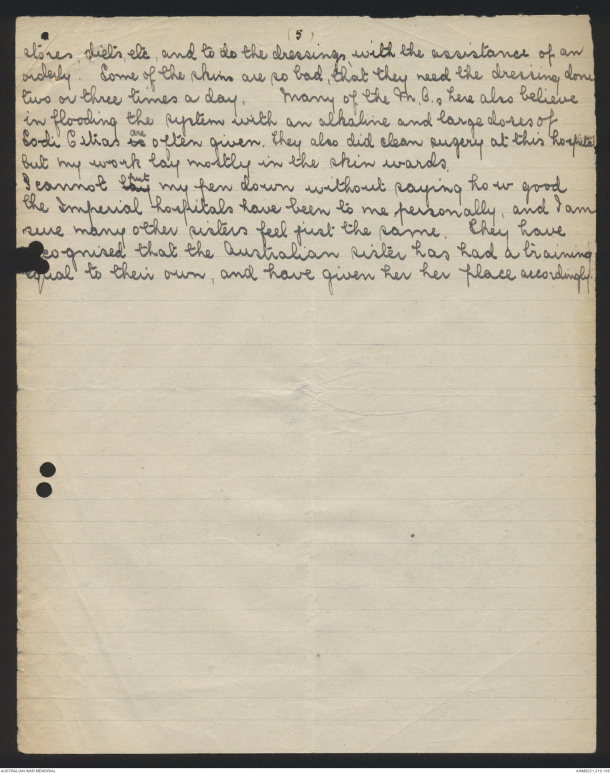 (5)
stores, diets, etc, and to do the dressings, with the assistance of an
orderly. Some of the skins are so bad, that they need the dressing done
two or three times a day. Many of the M.O.s here also believe
in flooding the system with an alkaline and large doses of
Sodi Citras is are often given. They also did clean sugery at this hospital,
but my work lay mostly in the skin wards.
I cannot lay put my pen down without saying how good
the Imperial hospitals have been to me personally, and I am
sure many other sisters feel just the same. They have
recognised that the Australian sister has had a training
equal to their own, and have given her her place accordingly.
AUSTRALIAN WAR MEMORIAL
AWM2021.219.105